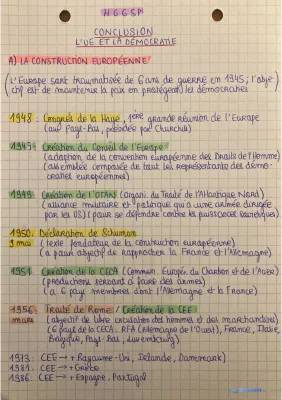 HGGSP
CONCLUSION
L'UE ET LA DÉMOCRATIE
A) LA CONSTRUCTION EUROPÉENNE
(L'Europe sort traumatisée de 6 ans de guerre en 1945; l'objec
tif est de maintenir la paix en protégeant les démocraties
1948: Congrès de la Haye, 1ère grande réunion de l'Europe
(aux Pays-Bas, présidée par Churchill)
1949: Création du Conseil de l'Europe
(adoption de la convention européenne des Droits de l'Homme)
(assemblée composée de tout les représentants des démo-
craties européennes)
1949: Création de l'OTAN (Organi. du Traité de l'Atlantique Nord)
(alliance militaire et politique qui a une armée dirigée
par les US) (pour se défendre contre la puissance soviétique)
1950: Déclaration de Schuman
9 mai (texte fondateur de la construction européenne)
(a pour objectif de rapprocher la France et l'Allemagne)
1951: Création de la CECA (Commun. Europé. du Charbon et de l'Acier)
(producteurs servant à faire des armes)
(a 6 pays membres dont l'Allemagne et la France)
Traité de Rome / Création de la CEE
mars (objectif de libre circulation des hommes et des marchandises)
(6 pays de la CECA: RFA (Allemagne de l'Ouest), France, Italie,
Belgique, Pays-Bas, Luxembourg)
1973: CEE → + Royaume-Uni, Irlande, Danemark
1981: CEE → + Grèce
1986: CEE → + Espagne, Portugal